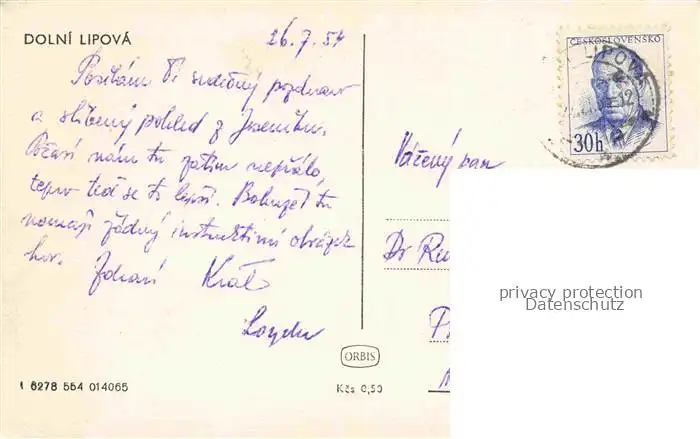 DOLNÍ LIPOVÁ
26.7.54
Posílám Ti srdečný pozdrav
a slíbený pohled z Jeseníku.
Počasí nám tu zatím nepřálo,
teprv teď se to lepší. Bohužel tu
nemají žádný instruktivní obrázek
hor. Zdraví Král
ČESKOSLOVENSKO
LIPOVÁ
30h
Vážený pan
Dr
privacy protection
Datenschutz
ORBIS
Kčs 0,50
1 6278 554 014065